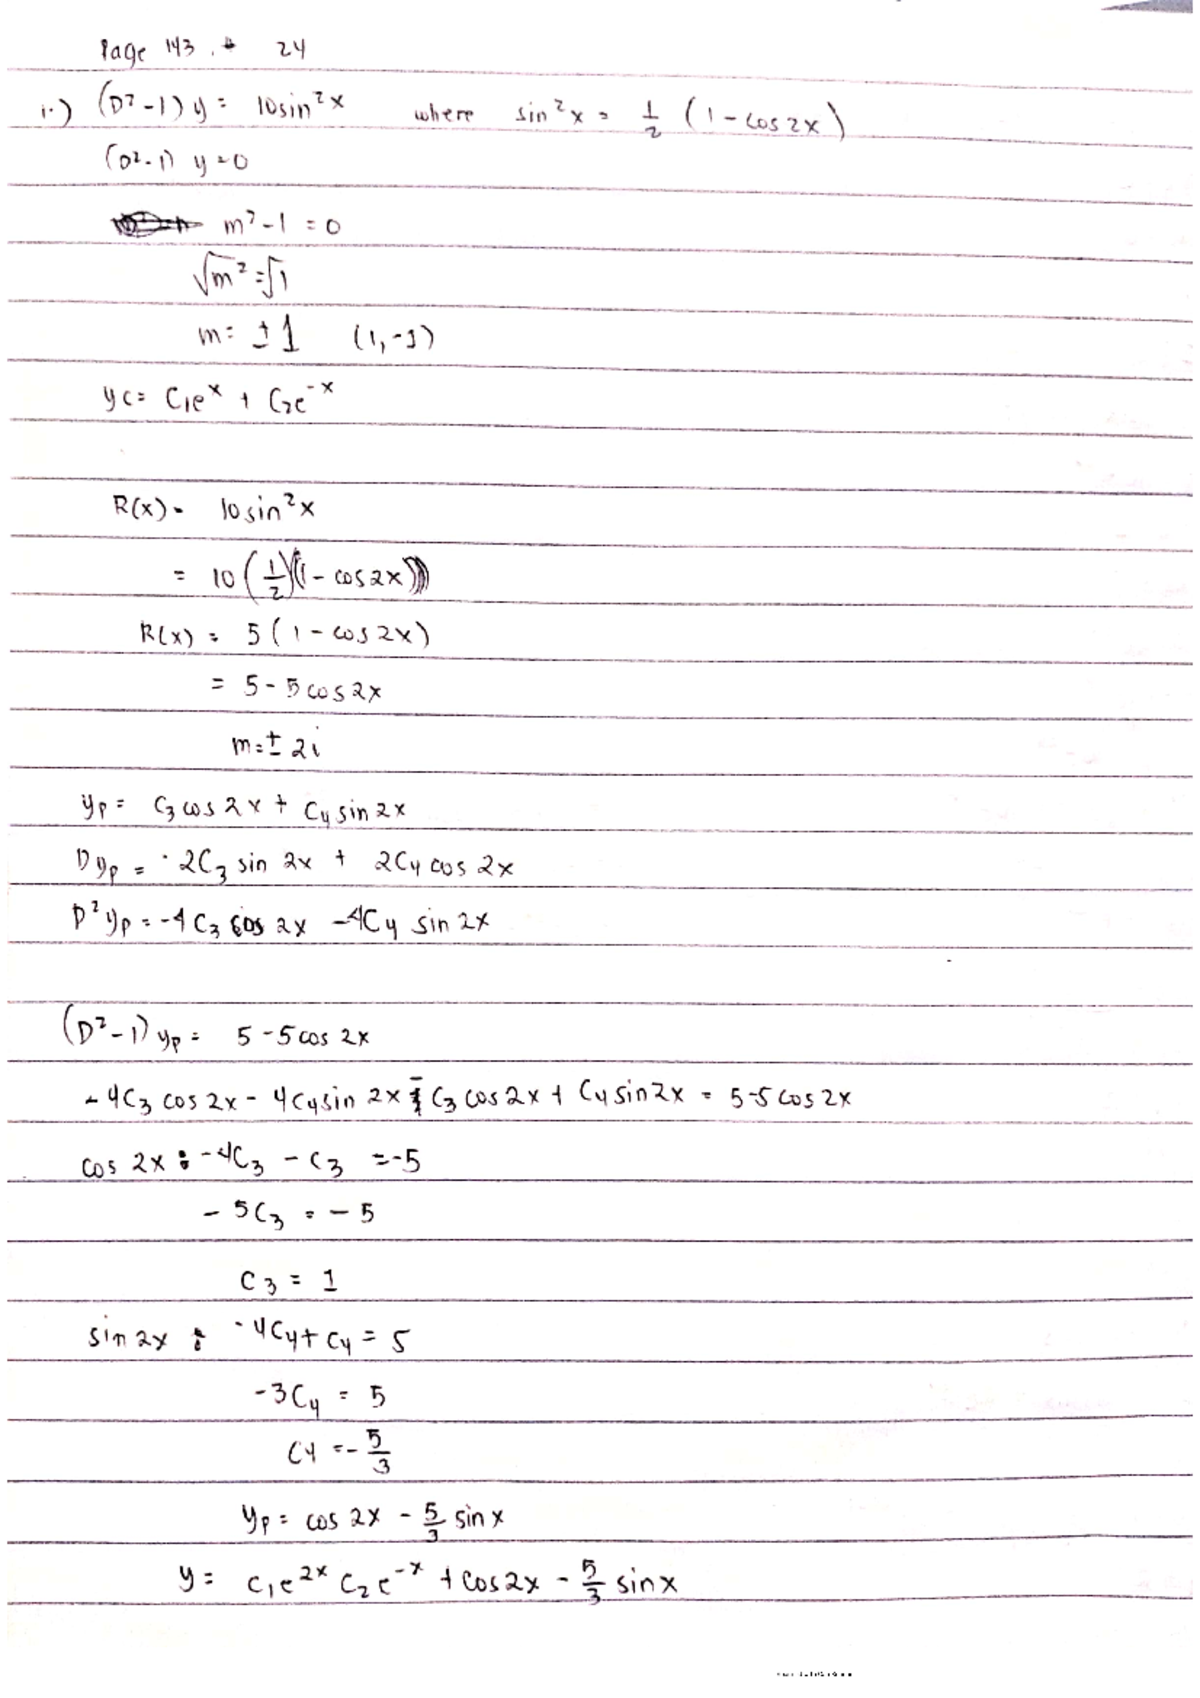 Page 143 . # 24
1.) (D² - 1) y = 10sin²x where sin²x = 1/2 (1 - cos2x)
(D² - 1) y = 0
m² - 1 = 0
√m² = √1
m = ± 1 (1, -1)
yc = C₁eˣ + C₂e⁻ˣ
R(x) = 10sin²x
= 10 (1/2)(1 - cos2x)
R(x) = 5 (1 - cos2x)
= 5 - 5cos2x
m = ± 2i
yp = C₃cos2x + C₄sin2x
Dyp = - 2C₃ sin 2x + 2C₄ cos 2x
D²yp = -4C₃ cos 2x - 4C₄ sin 2x
(D² - 1) yp = 5 - 5cos 2x
- 4C₃ cos 2x - 4C₄sin 2x - C₃ cos2x + C₄sin2x = 5-5cos2x
cos 2x : -4C₃ - C₃ = -5
- 5C₃ = - 5
C₃ = 1
sin 2x : -4C₄ + C₄ = 5
-3C₄ = 5
C4 = - 5/3
yp = cos 2x - 5/3 sin x
y = C₁e²ˣ C₂e⁻ˣ + cos2x - 5/3 sinx